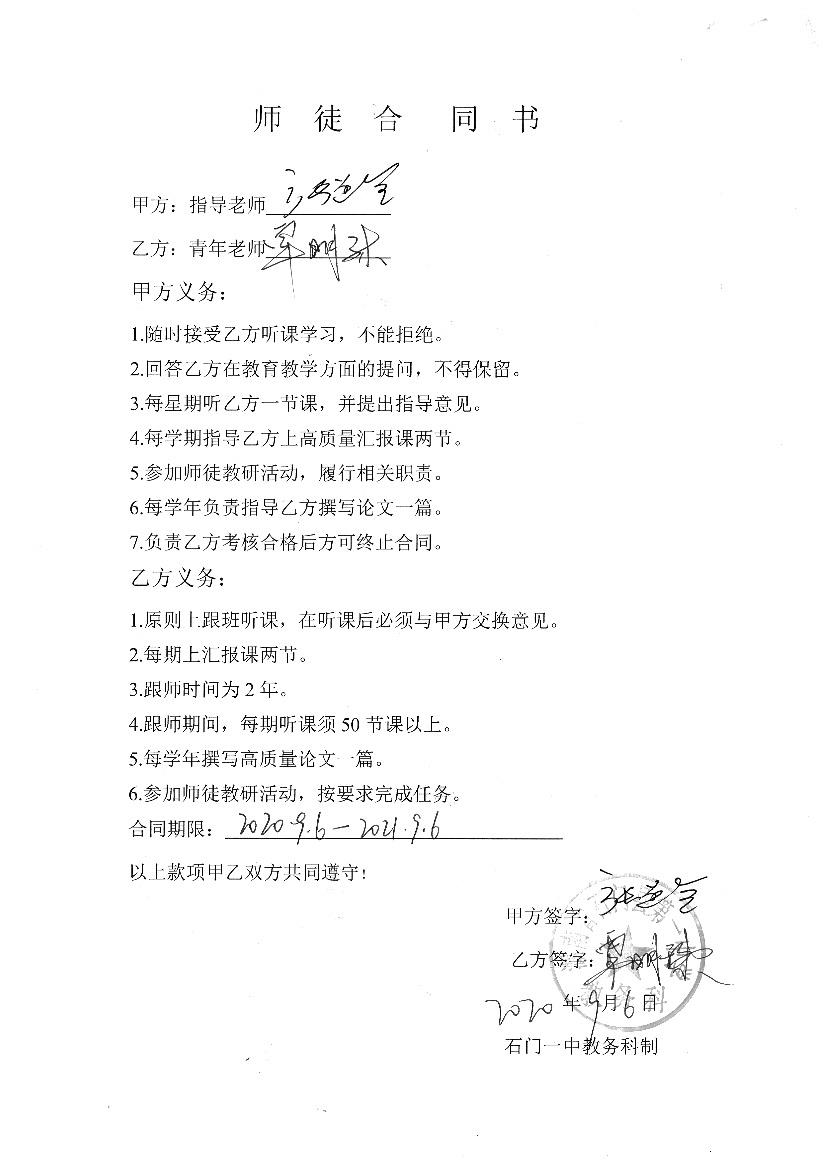 师徒合同书
甲方：指导老师
乙方：青年老师覃明珠
甲方义务：
1.随时接受乙方听课学习，不能拒绝。
2.回答乙方在教育教学方面的提问，不得保留。
3.每星期听乙方一节课，并提出指导意见。
4.每学期指导乙方上高质量汇报课两节。
5.参加师徒教研活动，履行相关职责。
6.每学年负责指导乙方撰写论文一篇。
7.负责乙方考核合格后方可终止合同。
乙方义务：
1.原则上跟班听课，在听课后必须与甲方交换意见。
2.每期上汇报课两节。
3.跟师时间为2年。
4.跟师期间，每期听课须50节课以上。
5.每学年撰写高质量论文一篇。
6.参加师徒教研活动，按要求完成任务。
合同期限：2020.9.6—2021.9.6
以上款项甲乙双方共同遵守！
甲方签字：
乙方签字：覃明珠
教务科
2020年9月6日
石门一中教务科制